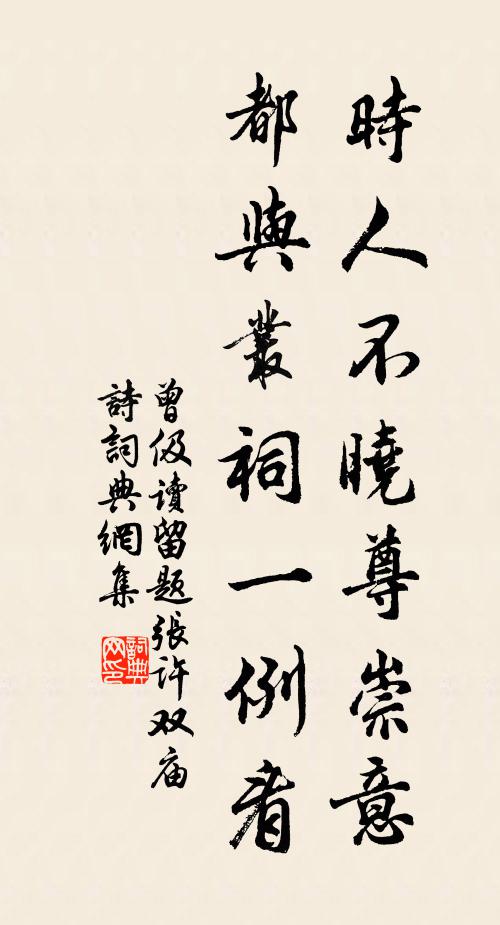 時人不曉尊崇意
都與叢祠一例看
曾伋讀留題張許双庙
詩詞典網集
詞典网印